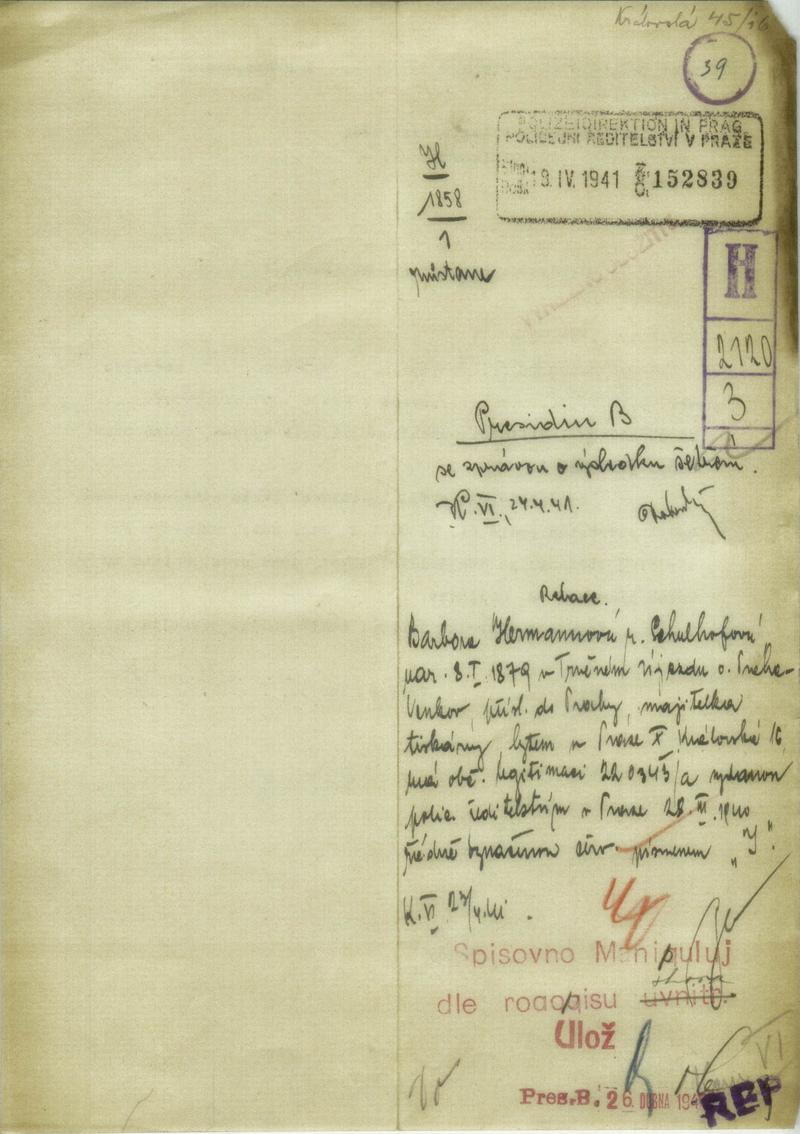 Královská 45/16
39
POLIZEIDIREKTION IN PRAG
POLICEJNÍ ŘEDITELSTVÍ V PRAZE
19. IV. 1941 152839
H
1858
1
zůstane
H
2120
3
Presidiu B
se zprávou o výsledku šetření.
K. VI., 24.4.41.
Relace.
Barbora Hermannová r. Schulhofová
nar. 8. I. 1879 v Trněném Újezdu o. Praha-
Venkov, přísl. do Prahy, majitelka
tiskárny, bytem v Praze X Královská 16
má obč. legitimaci 220343/a vydanou
polic. ředitelstvím v Praze 28. III. 1940
řádně označenou červ. písmenem "J".
K. VI 23/4.41.
Spisovno Manipuluj
dle rozpisu uvnitř.
Ulož
Pres. B. 26. DUBNA 194
VI
REP